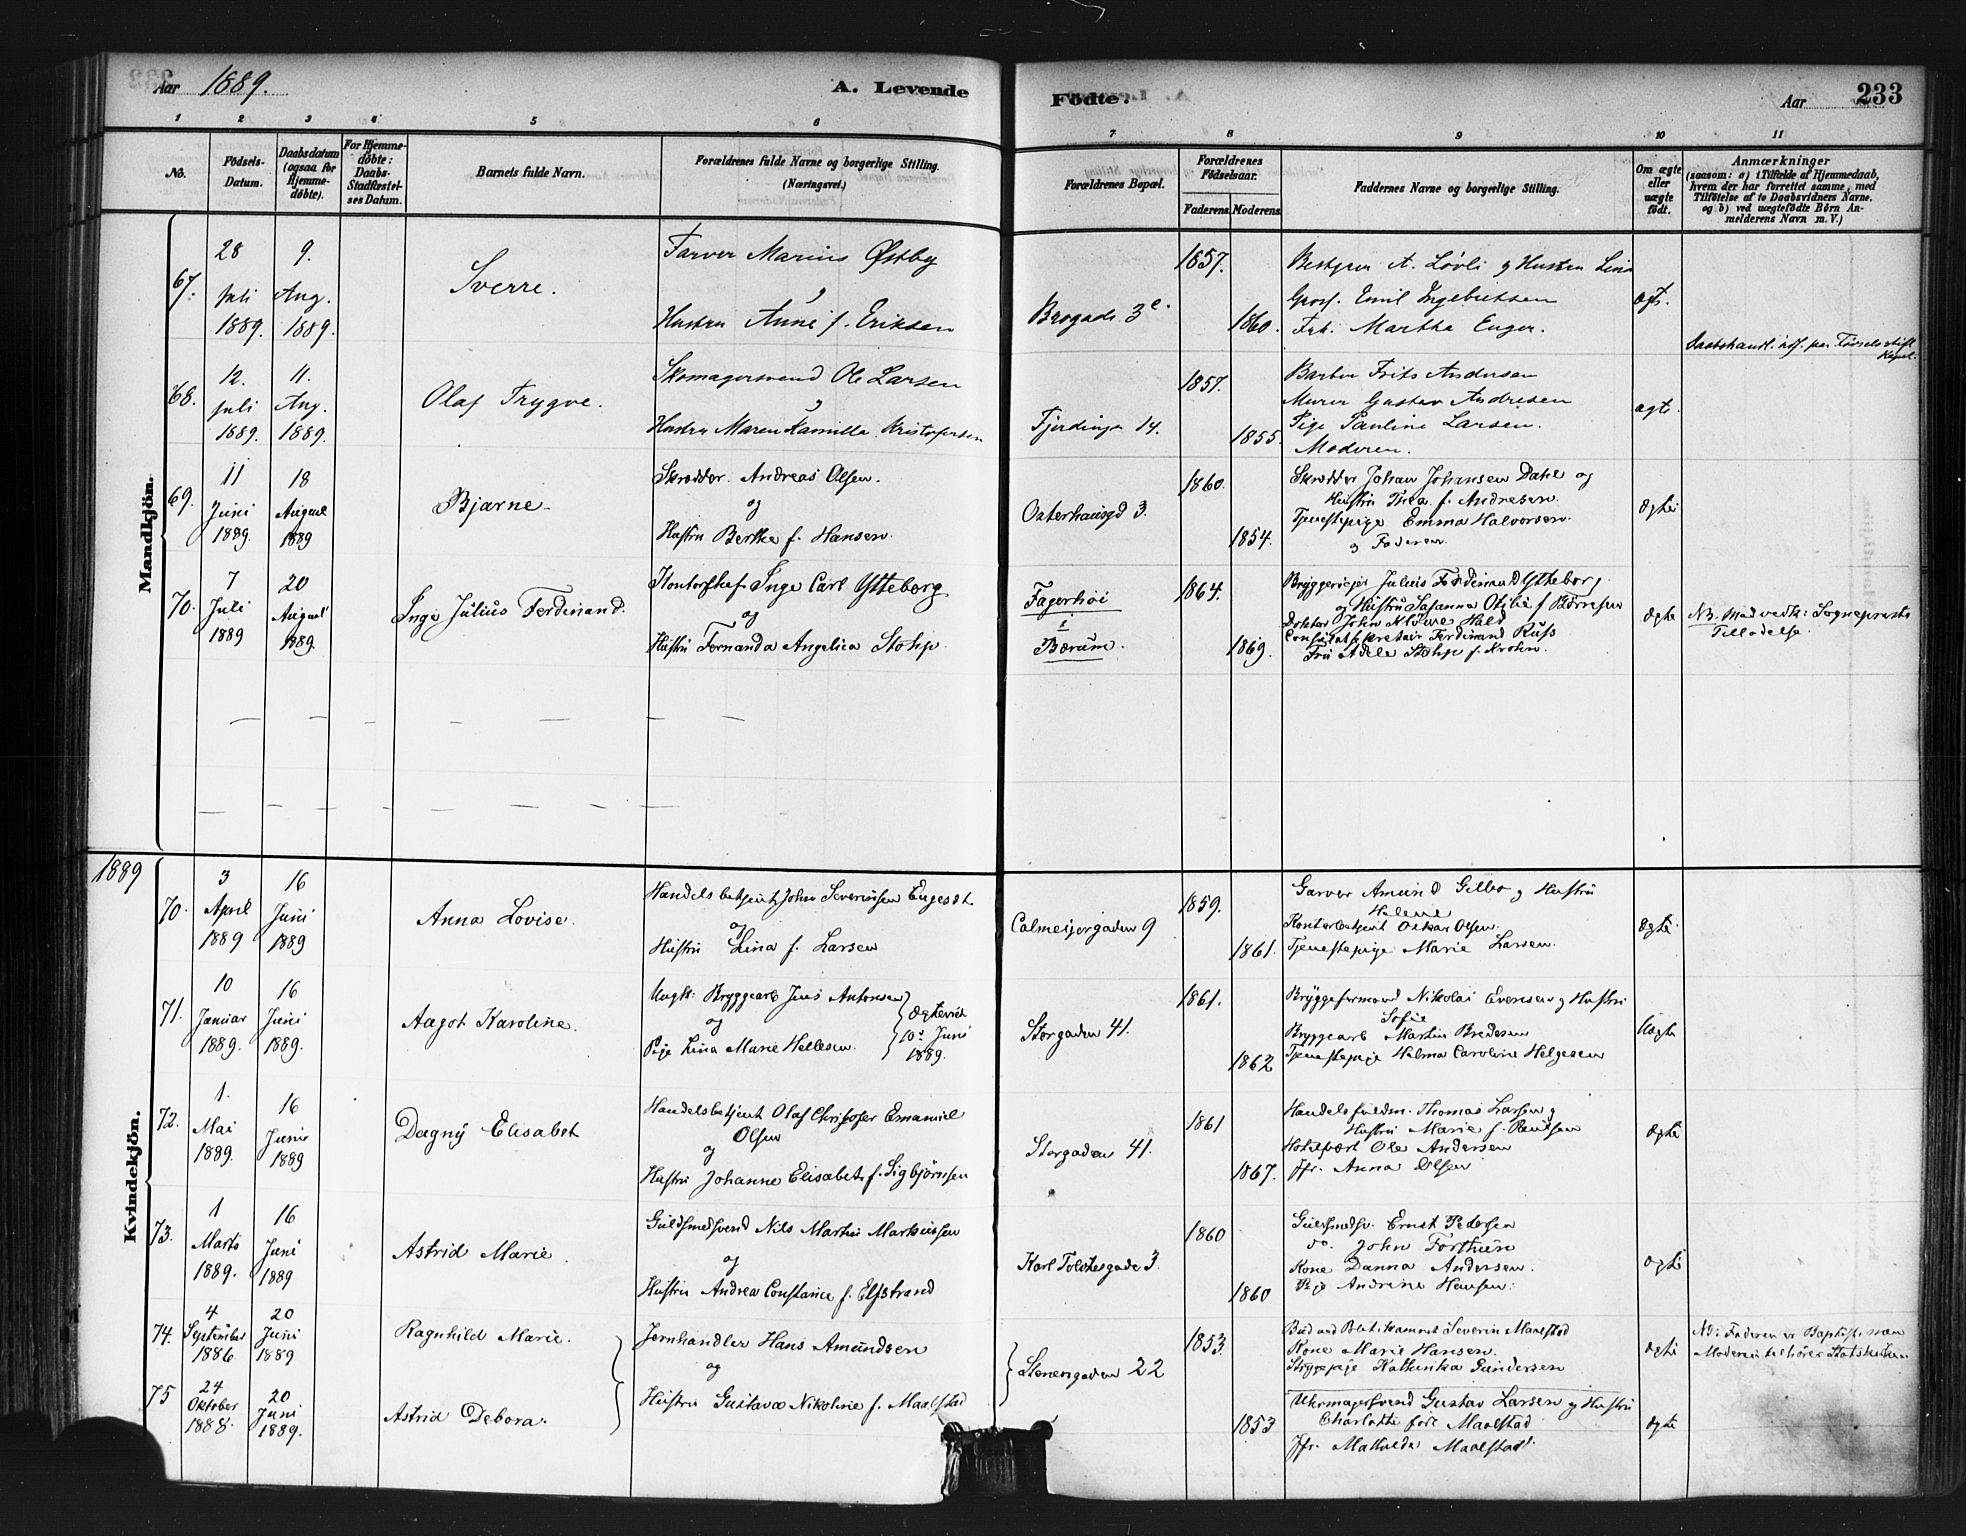 Aar 1889.
A. Levende Födte.
Aar 233
1 2 3 4 5 6 7 8 9 10 11
No.
Födsels-
Datum.
Daabsdatum
(ogsaa for
Hjemme-
döbte).
For Hjemme-
döbte:
Daabs-
Stadfæstel-
ses Datum.
Barnets fulde Navn.
Forældrenes fulde Navne og borgerlige Stilling.
(Næringsvei.)
Forældrenes Bopæl.
Forældrenes
Födselsaar.
Faderens. Moderens.
Faddernes Navne og borgerlige Stilling.
Om ægte
eller
uægte
födt.
Anmærkninger
(saasom: a) i Tilfælde af Hjemmedaab,
hvem der har forrettet samme, med
Tilföielse af to Daabsvidners Navne.
og b) ved uægtefödte Börn An-
melderens Navn m. V.)
Mandkjön.
67.
28
Juli
1889.
9.
Aug.
1889.
Sverre.
Farver Marius Østby
og
Hustru Anne f. Eriksen
Brogade 3c.
1857.
1860.
A. Løvli og Hustru Lina
Gross. Emil Ingebretsen
Frk. Martha Enger.
ægte.
68.
12.
Juli
1889.
11.
Aug.
1889.
Olaf Trygve.
Skomagersvend Ole Larsen
og
Hustru Maren Kamilla Kristofersen
Fjerdingen 14.
1857.
1855.
Barber Frits Andersen
Murer Gustav Andresen
Pige Pauline Larsen.
Moderen.
ægte.
Daabshandl. udf. paa Fødselsstift.
Kapel.
69.
11
Juni
1889.
18
August
1889
Bjarne
Skrædder Andreas Olsen.
og
Hustru Berthe f. Hansen.
Osterhausgd 3.
1860.
1854.
Skrædder Johan Johansen Dahl og
Hustru Thea f. Andresen.
Tjenestepige Emma Halvorsen.
og Faderen.
Ægte
70.
7
Juli
1889
20
August
1889.
Inge Julius Ferdinand.
Kontorchef Inge Carl Ytteborg
og
Hustru Fernanda Angelica Stolp.
Fagerhöi
i
Bærum.
1864.
1869.
Bryggerieier Julius Ferdinand Ytteborg
og Hustru Susanna Otilie f. Börresen
Doktor John Hald
Consulatsekretair Ferdinand Russ
Fru Adele Stolp f. Krohn.
Ægte
NB. Med vedk: Sognepræsts
Tilladelse.
1889
Kvindekjön.
70.
3
April
1889
16
Juni
1889
Anna Lovise.
Handelsbetjent John Severinsen Engeset
og
Hustru Lina f. Larsen
Calmeijergaden 9
1859.
1861.
Garver Amund Gilbo og Hustru
Helene
Kontorbetjent Oskar Olsen.
Tjenestepige Marie Larsen.
Ægte
71.
10
Januar
1889.
16
Juni
1889.
Aagot Karoline.
Ungk: Bryggearb Jens Antonsen
og
Pige Lina Marie Hellesen.
Ægteviet
10de Juni
1889.
Storgaden 41.
1861.
1862
Bryggeformand Nikolai Evensen og Hustru
Sofie
Bryggearb Martin Bredesen
Tjenestepige Halma Caroline Helgesen
Uægte
72.
1.
Mai
1889.
16
Juni
1889
Dagny Elisabet
Handelsbetjent Olaf Christofer Emanuel
Olsen
og
Hustru Johanne Elisabet f. Sigbjörnsen
Storgaden 41.
1861
1867.
Handelsfuldm. Thomas Larsen og
Hustru Marie f. Paulsen
Hotelvært Ole Andersen
Jfr. Anna Olsen
Ægte
73.
1
Marts
1889.
16
Juni
1889
Astrid Marie.
Guldsmedsvend Nils Martin Markussen
og
Hustru Andrea Constance f. Elfstrand
Karl Tolchesgade 3.
1860
1860
Guldsmedsv. Ernst Pedersen
do. John Forthun
Kone Danna Andersen.
Pige Andrine Hansen.
Ægte
74.
4
September
1886
20
Juni
1889
Ragnhild Marie.
Jernhandler Hans Amundsen
og
Hustru Gustava Nikoline f. Maalstad
Stenersgaden 22
1853.
1853
Severin Maalstad
Kone Marie Hansen.
Strygepige Kathinka Gundersen
Ægte
NB: Faderen er Baptist men
Moderen tilhører Statskirken.
75
24
Oktober
1888.
20
Juni
1889.
Astrid Debora.
Uhrmagersvend Gustav Larsen og Hustru
Charlotte född Maalstad
Jfr. Mathilde Maalstad.
Ægte